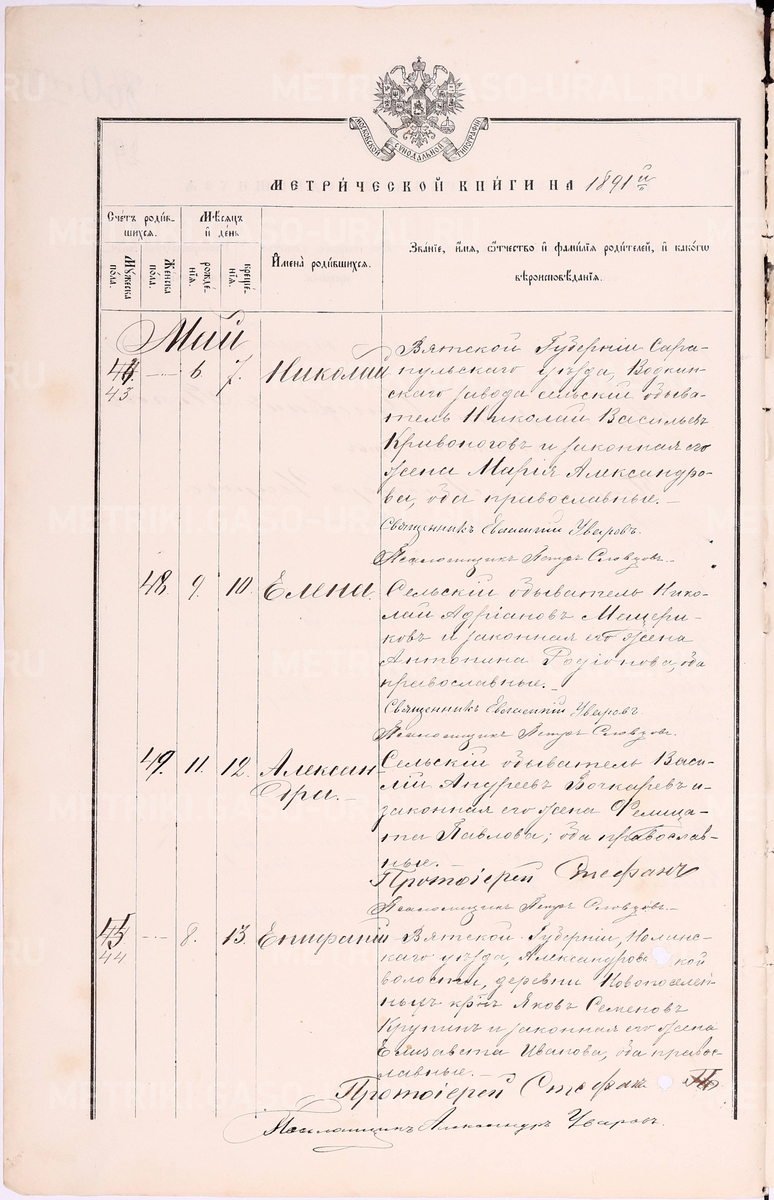 МОСКОВСКОЙ СѴНОДАЛЬНОЙ ТИПОГРАФІИ
МЕТРИ́ЧЕСКОЙ КНИ́ГИ НА 1891й
Счетъ роди́в-
шихся.
Мѣ́сяцъ
и́ де́нь
И҆мена̀ роди́вшихся.
Зва́нїе, и҆́мя, ѻ҆́тчество и҆ фами́лїя роди́телей, и҆ како́гѡ
вѣроисповѣ́данїя.
Мꙋ́жеска по́ла.
Же́нска по́ла.
рожде́-нїя.
креще́-нїя.
Май
43 6. 7. Николай Вятской Губерніи Сара-
пульскаго уѣзда, Воткин-
скаго завода сельскій обыва-
тель Николай Васильевъ
Кривоноговъ и законная его
жена Марія Александро-
ва, оба православные.
Священникъ Евгеній Уваровъ.
Псаломщикъ Петръ Словцовъ.
48. 9. 10. Елена. Сельскій обыватель Нико-
лай Адріановъ Мащери-
ковъ и законная его жена
Антонина Родіонова, оба
православные.
Священникъ Евгеній Уваровъ.
Псаломщикъ Петръ Словцовъ.
49. 11. 12. Алексан-
дра. Сельскій обыватель Васи-
лій Андреевъ Бочкаревъ и
законная его жена Фелица-
та Павлова; оба православ-
ные.
Протоіерей Стефанъ
Псаломщикъ Петръ Словцовъ.
44 8. 13. Епифаній Вятской Губерніи, Нолинс-
каго уѣзда, Александровской
волости, деревни Новопоселен-
ныхъ крнъ Яковъ Семеновъ
Крупинъ и законная его жена
Елизавета Иванова, оба правос-
лавные.
Протоіерей Стефан
Псаломщикъ Александръ Уваровъ.
METRIKI.GASO-URAL.RU